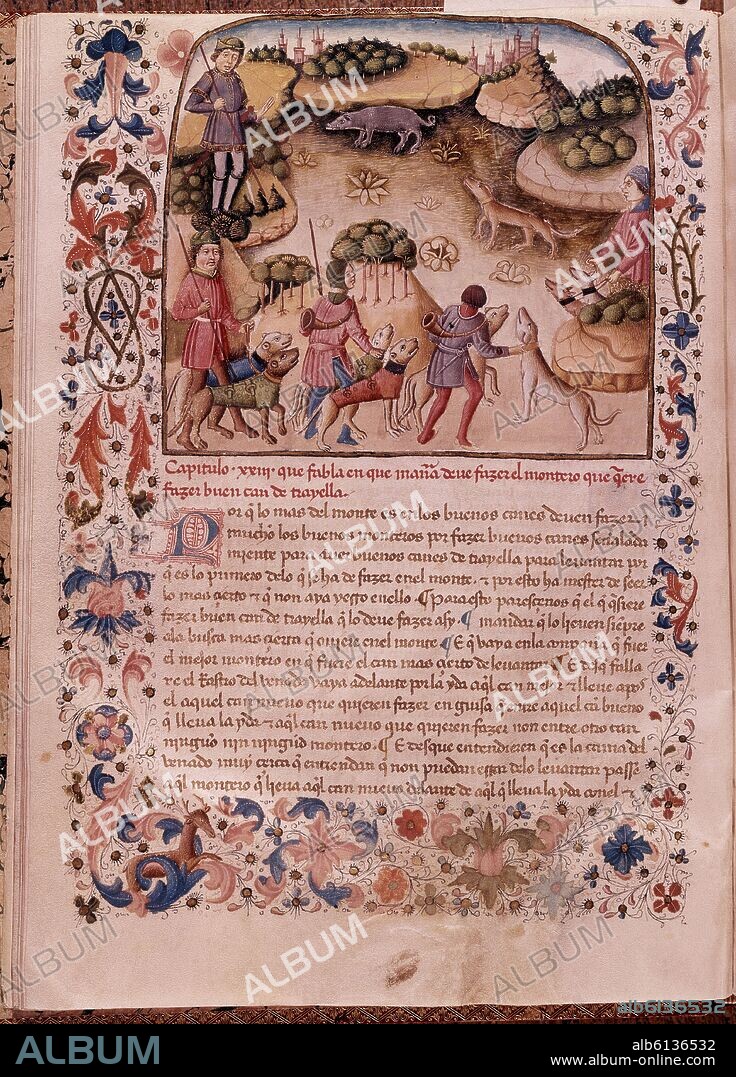 Capitulo · xxiij · que fabla en que mañ̃a deue fazer el montero que q̃ere
fazer buen can de trayella ·
Por q̃ lo mas del monte es en los buenos canes deuen fazer
mucho los buenos monteros por fazer buenos canes señalada
miente para auer buenos canes de trayella para leuantar por
q̃ es lo primero delo q̃ se ha de fazer enel monte · ⁊ por esto ha mester de seer
lo mas çierto ⁊ q̃ non aya yerro enello · ¶ Para esto paresçenos q̃ el q̃ q̃siere
fazer buen can de trayella q̃ lo deue fazer asy · ¶ mandar q̃ lo lieuen siẽpre
ala busca mas çierta q̃ ouiere enel monte · ¶ E q̃ vaya enla conpañia q̃ fuer
el mejor montero en q̃ fuere el can mas çierto de leuantar · ¶ E desq̃ falla
re el Rastro del venado vaya adelante por la yda aq̃l can mejor ⁊ lieue apos
el aquel can nueuo que quieren fazer en guisa q̃ entre aquel cã bueno
q̃ lieua la yda ⁊ aq̃l can nueuo que quieren fazer non entre otro can
ninguno nin ningũd montero · ¶ E desque entendieren q̃ es la cama del
venado muy çerca q̃ entiendan q̃ non puedan estar delo leuantar passe
aq̃l montero q̃ lieua aq̃l can nueuo delante de aq̃l q̃ lieua la yda con el ·
ALBUM
ab6136532
ALBUM
alb6136532
www.album-online.com